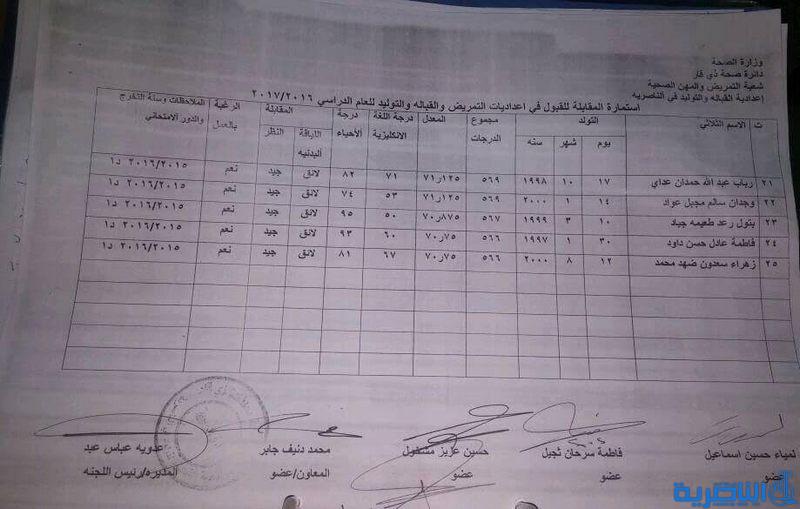 وزارة الصحة
دائرة صحة ذي قار
شعبة التمريض والمهن الصحية
إعدادية القبالة والتوليد في الناصريه
استمارة المقابلة للقبول في اعداديات التمريض والقباله والتوليد للعام الدراسي ٢٠١٧/٢٠١٦
ت الاسم الثلاثي التولد مجموع الدرجات المعدل درجة اللغة الانكليزية درجة الأحياء المقابلة الرغبة بالعمل الملاحظات وسنة التخرج والدور الامتحاني
يوم شهر سنه اللياقة البدنيه النظر
٢١ رباب عبد الله حمدان عداي ١٧ ١٠ ١٩٩٨ ٥٦٩ ٧١٫١٢٥ ٧١ ٨٢ لائق جيد نعم ٢٠١٦/٢٠١٥ د١
٢٢ وجدان سالم مجبل عواد ١٤ ١ ٢٠٠٠ ٥٦٩ ٧١٫١٢٥ ٥٣ ٧٤ لائق جيد نعم ٢٠١٦/٢٠١٥ د١
٢٣ بتول رعد طعيمه جياد ١٠ ٣ ١٩٩٩ ٥٦٧ ٧٠٫٨٧٥ ٥٠ ٩٥ لائق جيد نعم ٢٠١٦/٢٠١٥ د١
٢٤ فاطمة عادل حسن داود ٣٠ ١ ١٩٩٧ ٥٦٦ ٧٠٫٧٥ ٦٠ ٩٣ لائق جيد نعم ٢٠١٦/٢٠١٥ د١
٢٥ زهراء سعدون ضهد محمد ١٢ ٨ ٢٠٠٠ ٥٦٦ ٧٠٫٧٥ ٦٧ ٨١ لائق جيد نعم ٢٠١٦/٢٠١٥ د١
لمياء حسين اسماعيل فاطمة سرحان ثجيل حسين عزيز محمد دنيف جابر عدويه عباس عبد
عضو عضو عضو المعاون/عضو المديره/رئيس اللجنه
الناصرية